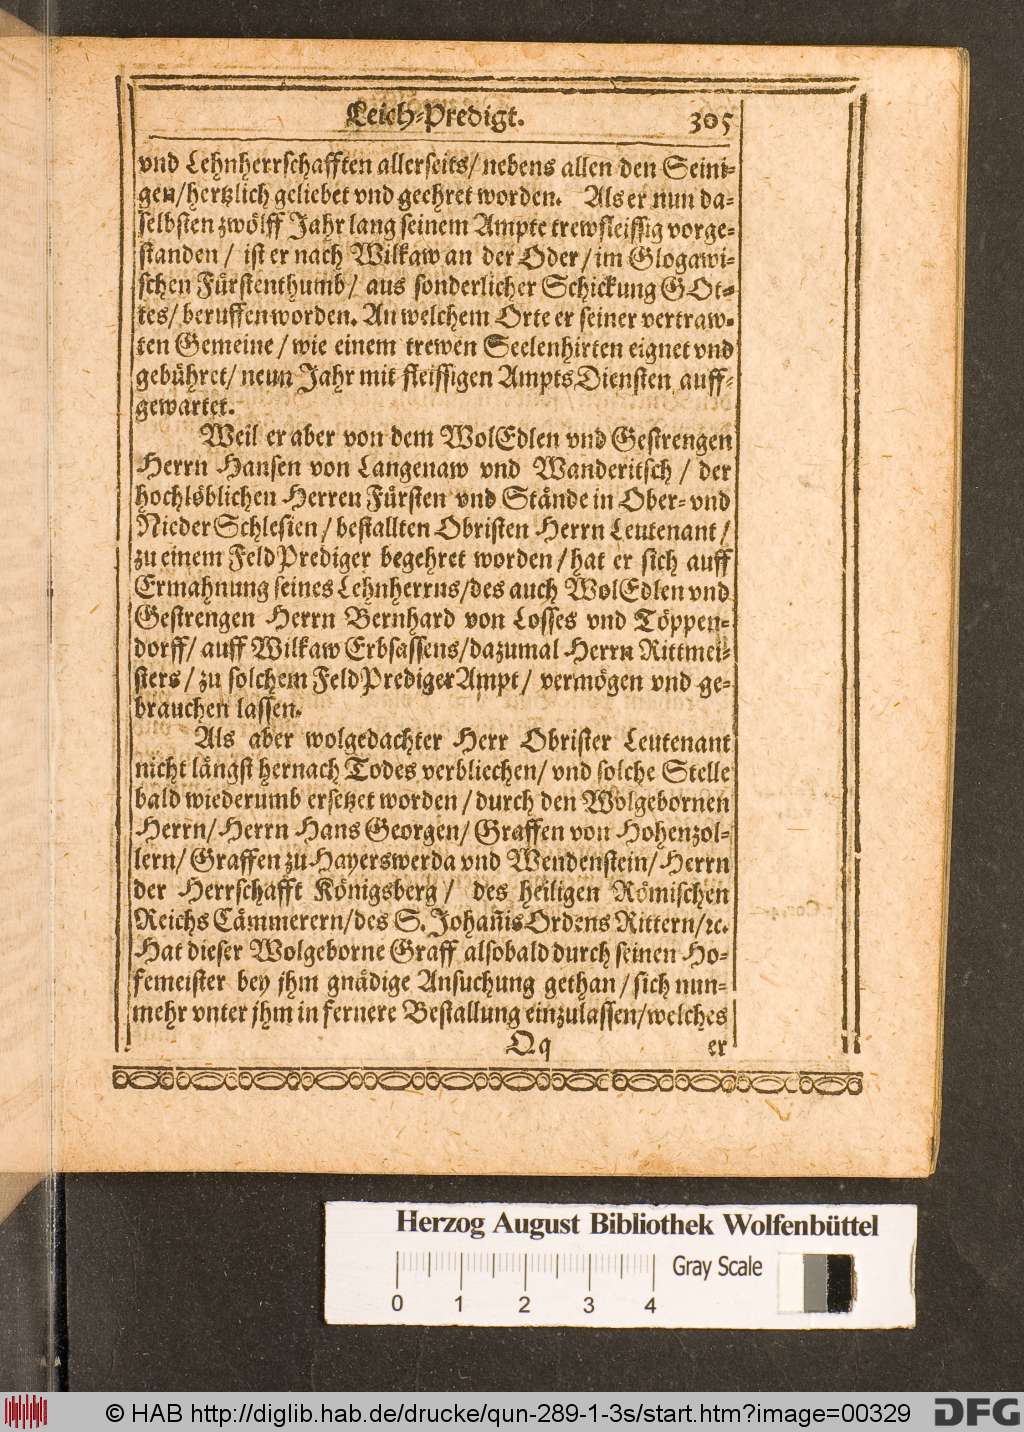 Leich-Predigt. 305
vnd Lehnherrschafften allerseits/ nebens allen den Seini-
gen/ hertzlich geliebet vnd geehret worden. Als er nun da-
selbsten zwölff Jahr lang seinem Ampte trewfleissig vorge-
standen / ist er nach Wilkaw an der Oder / im Glogawi-
schen Fürstenthumb/ aus sonderlicher Schickung GOt-
tes/ beruffen worden. An welchem Orte er seiner vertraw-
ten Gemeine / wie einem trewen Seelenhirten eignet vnd
gebühret/ neun Jahr mit fleissigen AmptsDiensten auff-
gewartet.
Weil er aber von dem WolEdlen vnd Gestrengen
Herrn Hansen von Langenaw vnd Wanderitsch / der
hochlöblichen Herren Fürsten vnd Stände in Ober- vnd
NiederSchlesien / bestallten Obristen Herrn Leutenant /
zu einem FeldPrediger begehret worden / hat er sich auff
Ermahnung seines Lehnherrns/des auch WolEdlen vnd
Gestrengen Herrn Bernhard von Losses vnd Töppen-
dorff/ auff Wilkaw Erbsassens/dazumal Herrn Rittmei-
sters / zu solchem FeldPredigerAmpt/ vermögen vnd ge-
brauchen lassen.
Als aber wolgedachter Herr Obrister Leutenant
nicht längst hernach Todes verbliechen/ vnd solche Stelle
bald wiederumb ersetzet worden / durch den Wolgebornen
Herrn/ Herrn Hans Georgen/ Graffen von Hohenzol-
lern/ Graffen zu Hayerswerda vnd Wendenstein/ Herrn
der Herrschafft Königsberg / des heiligen Römischen
Reichs Cämmerern/des S. Johan̅is Ordens Rittern/ꝛc.
Hat dieser Wolgeborne Graff alsobald durch seinen Ho-
femeister bey jhm gnädige Ansuchung gethan / sich nun-
mehr vnter jhm in fernere Bestallung einzulassen/welches
Qq er
Herzog August Bibliothek Wolfenbüttel
Gray Scale
0 1 2 3 4
© HAB http://diglib.hab.de/drucke/qun-289-1-3s/start.htm?image=00329 DFG